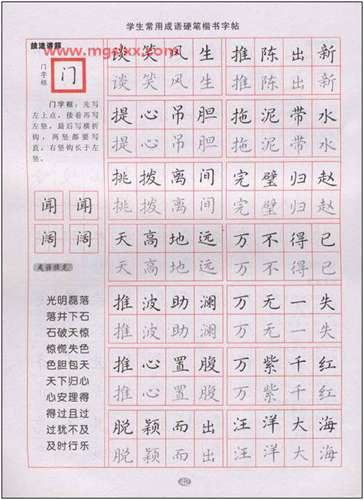 学生常用成语硬笔楷书字帖
技法讲解
www.mgzxzs.com
门字框
门
门字框：先写
左上点，接着再写
左竖，最后写横折
钩，两竖都要写
直，右竖钩长于左
竖。
闻 闻
阔 阔
成语接龙
光明磊落
落井下石
石破天惊
惊慌失色
色胆包天
天下归心
心安理得
得过且过
过犹不及
及时行乐
谈笑风生 推陈出新
谈笑风生 推陈出新
提心吊胆 拖泥带水
提心吊胆 拖泥带水
挑拨离间 完璧归赵
挑拨离间 完璧归赵
天高地远 万不得已
天高地远 万不得已
推波助澜 万无一失
推波助澜 万无一失
推心置腹 万紫千红
推心置腹 万紫千红
脱颖而出 汪洋大海
脱颖而出 汪洋大海